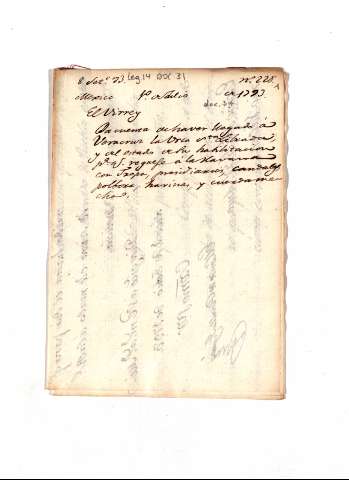 Leg 14 Doc 31
nº 228
Mexico 1º de Julio de 1793
doc. 34
El Virrey
Da cuenta de haver llegado á
Veracruz la Urca Sta
y del estado de su habilitacion
pª qº regrese á la Havana
con Tropa, presidiarios, caudales
polbora, harinas, y cuerda me
cha.